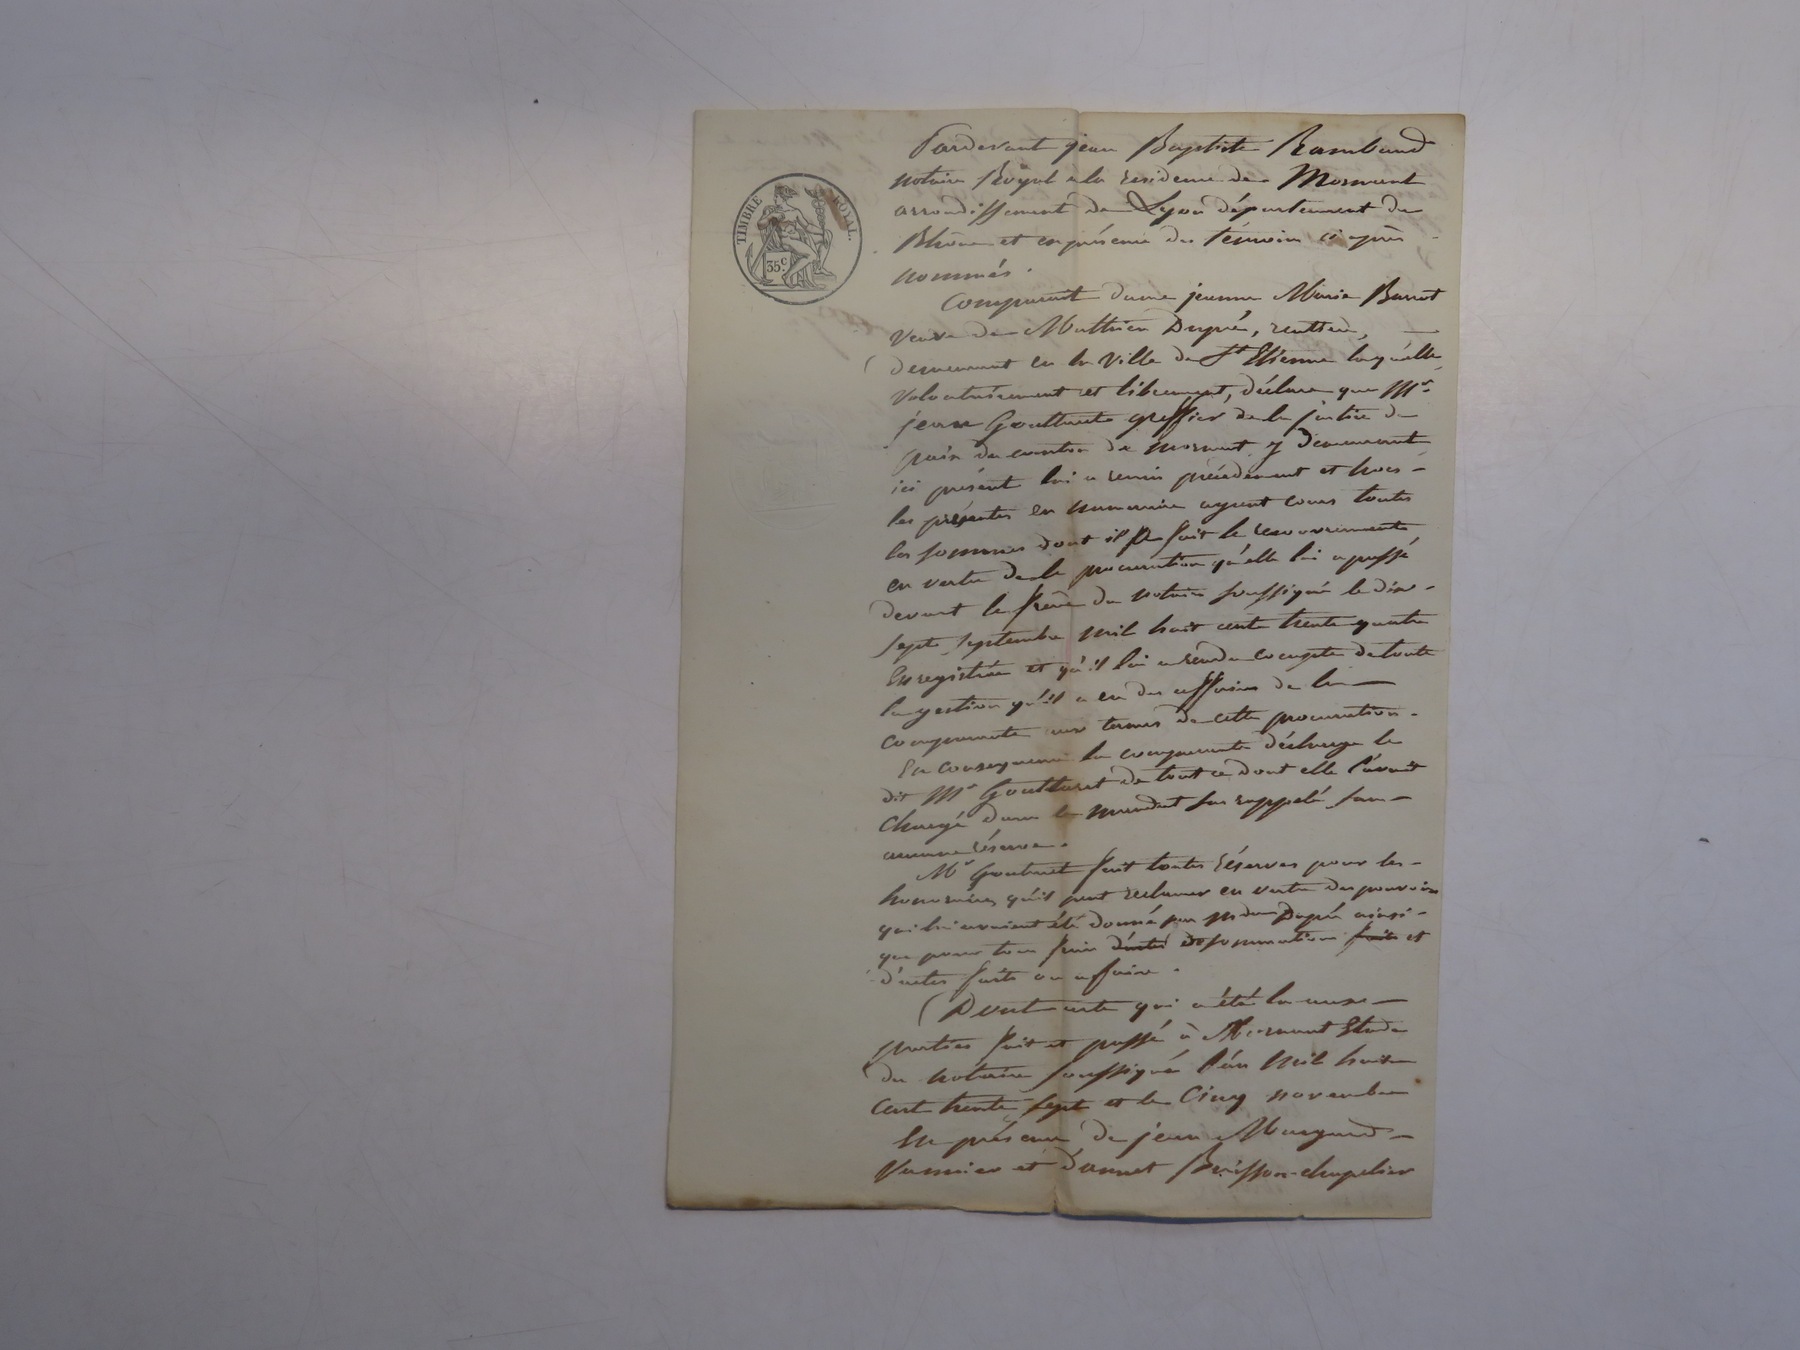 TIMBRE ROYAL.
35c.
Pardevant jean Baptiste Rambaud
notaire Royal à la residence de Mornant
arrondissement de Lyon département du
Rhône et en présence des témoins ci après
nommés.
Comparait dame jeanne Marie Barrot
veuve de Mathieu Dupré, rentière,
demeurant en la ville de St Etienne laquelle
volontairement et librement, déclare que Mr
jean Gouttenet greffier de la justice de
paix du canton de Mornant y demeurant
ici présent lui a remis précédement et hors
les présentes en numeraire ayant cours toutes
les sommes dont il a fait le recouvrement
en vertu de la procuration qu'elle lui a passé
devant le frère du notaire soussigné le dix-
sept septembre mil huit cent trente quatre
Enregistrée et qu'il lui a rendu compte de toute
la gestion qu'il a eu des affaires de la
comparante aux termes de cette procuration.
En consequence la comparante décharge le
dit Mr Gouttenet de tout ce dont elle l'avait
chargé dans le mandat sus rappelé sans
aucune réserve.
Mr Goutenet fait toutes réserves pour les
honoraires qu'il peut reclamer en vertu des pouvoirs
qui lui avaient été donné par Mde Dupré ainsi
que pour tous frais d'actes de sommation faits et
d'actes faits ou affaire.
Dont acte qui a été lu aux
parties fait et passé à Mornant Etude
du notaire soussigné l'an mil huit
cent trente sept et le cinq novembre
En présence de jean
Vannier et d'annet Brisson chapelier